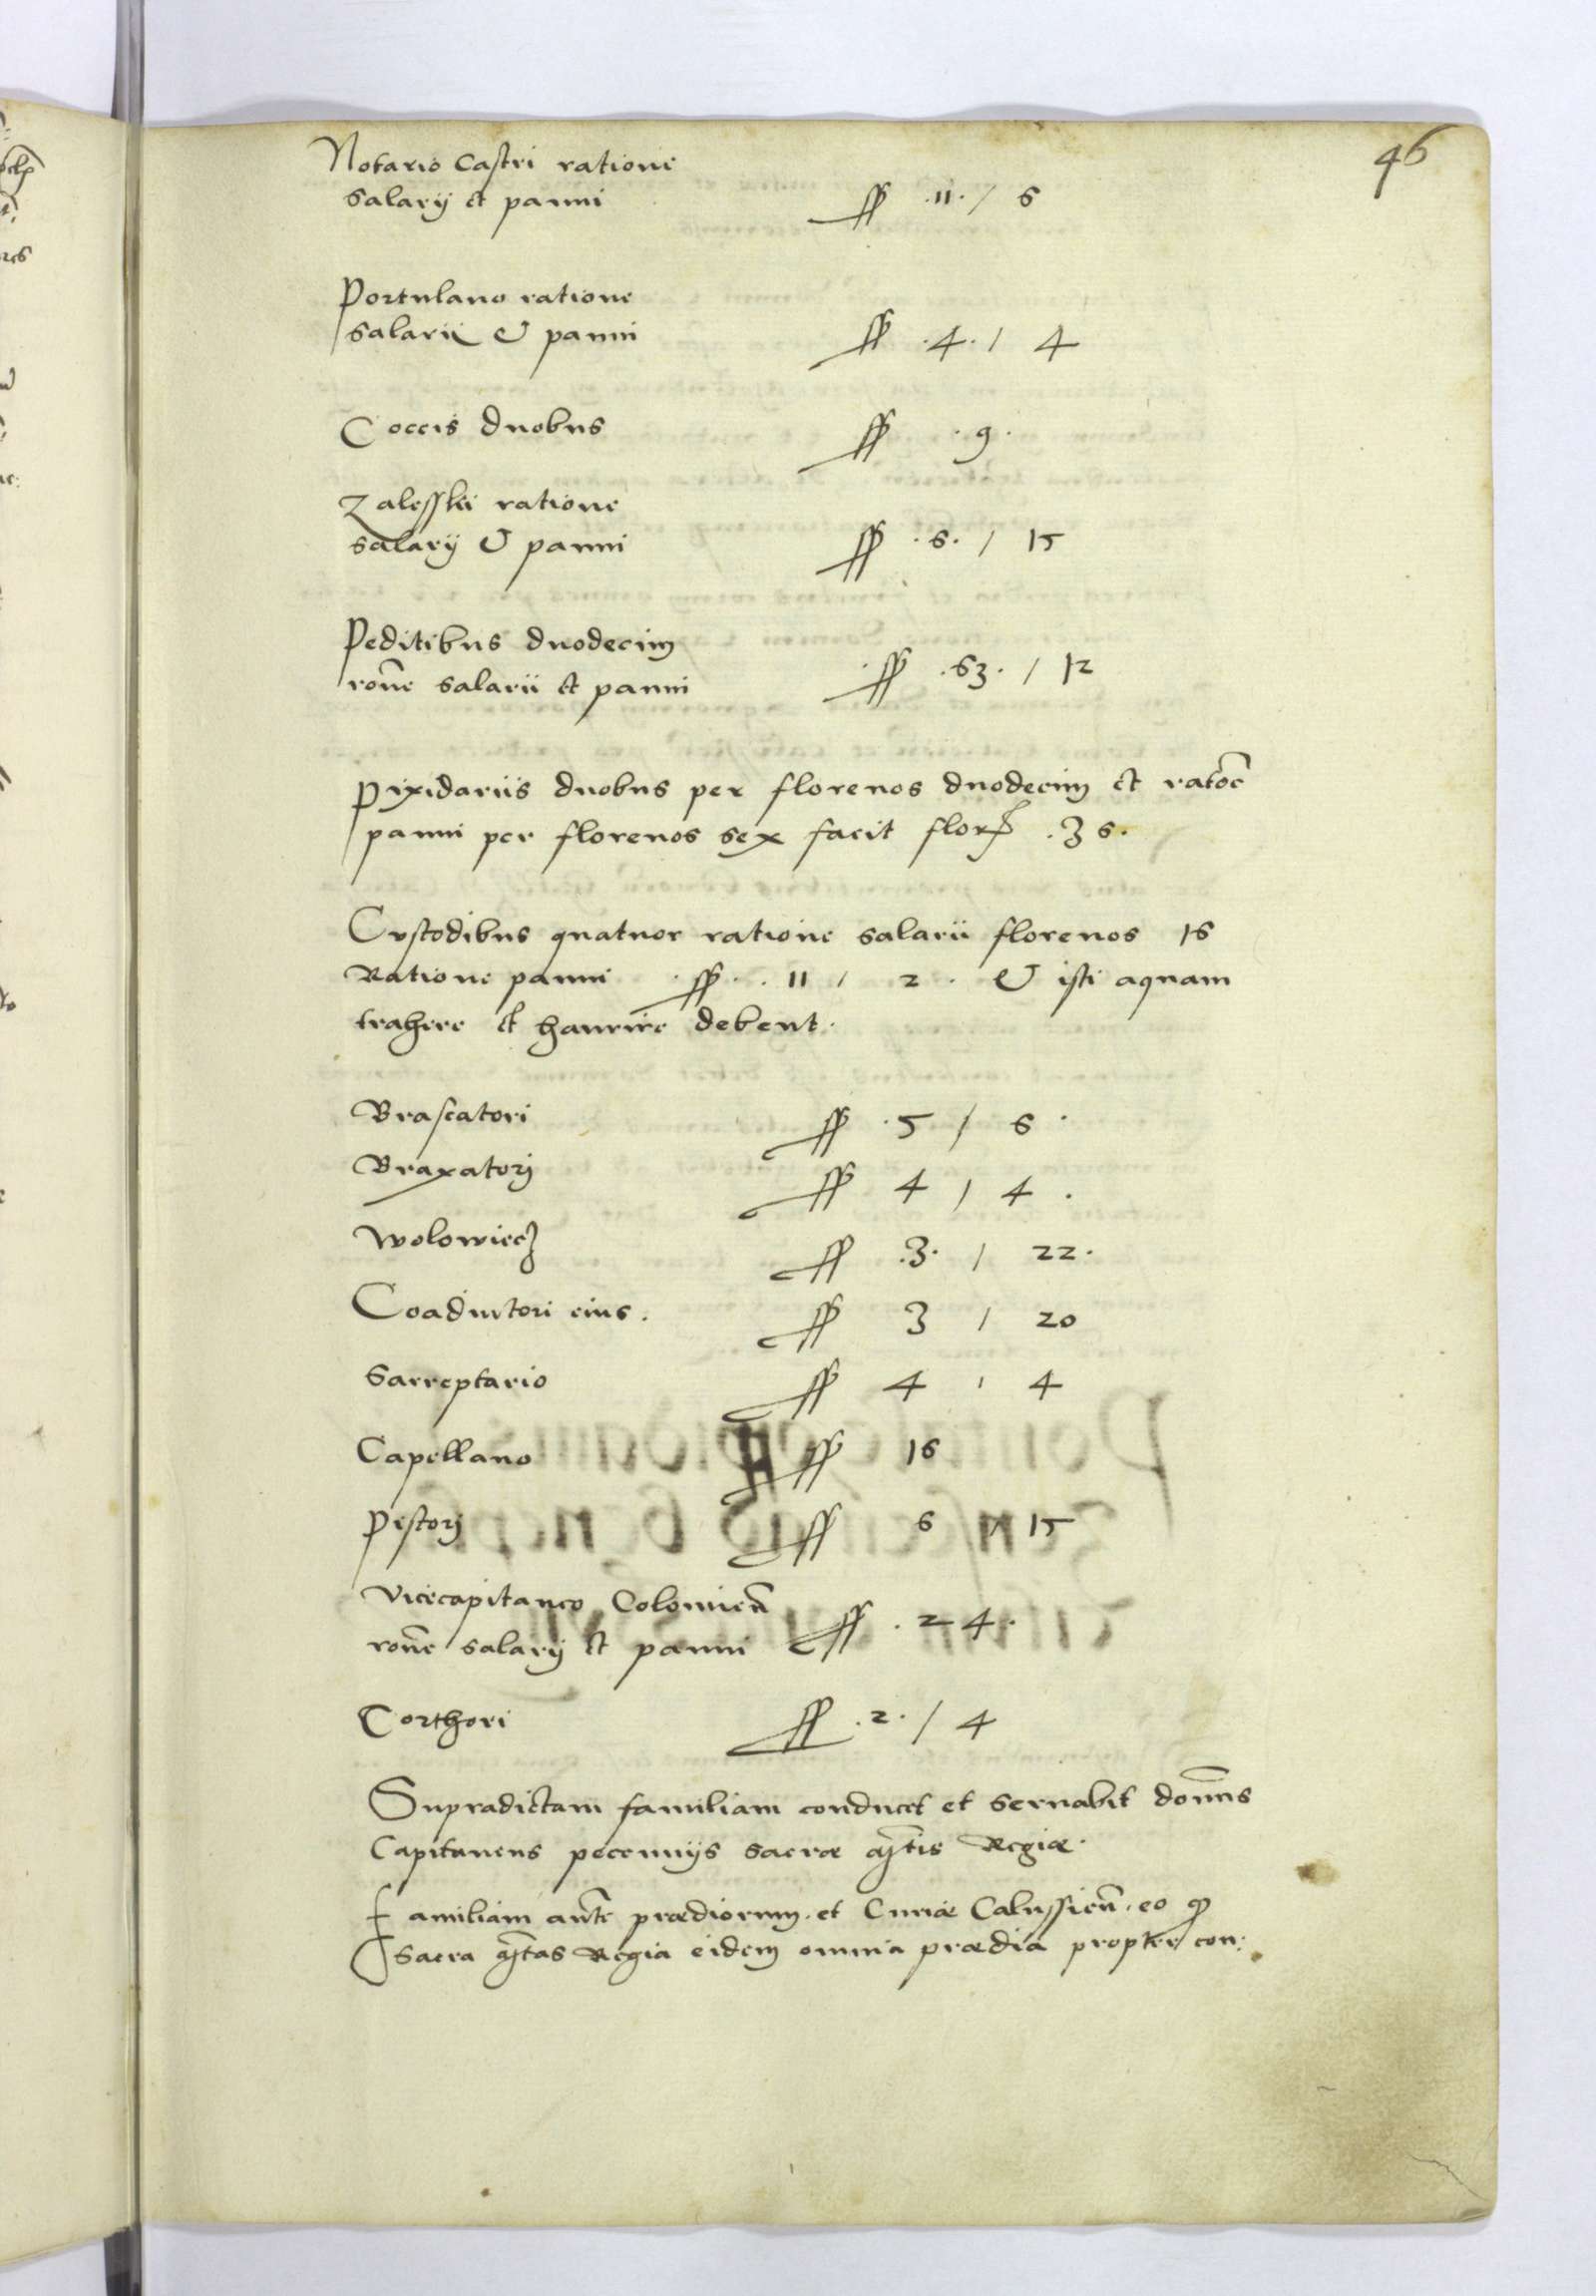 46
Notario Castri ratione
salarij et panni ff .11. / 6
Portulano ratione
salarii & panni ff .4. / 4
Coccis duobus ff .9.
Zalesskÿ ratione
salarij & panni ff .6. / 15
Peditibus duodecim
rõne salarii et panni ff .63. / 12
Pixidariis duobus per florenos duodecim et
panni per florenos sex facit flor .36.
Custodibus quatuor ratione salarii florenos 16
Ratione panni ff .11 / 2. & isti aquam
trahere et haurire debent.
Brascatori ff .5 / 6.
Braxatorj ff 4 / 4.
Wolowiecz ff .3. / 22.
Coadiutori eius. ff 3 / 20
Sarreptario ff 4 / 4
Capellano ff 16
Pistorj ff 6 / 15
Vicecapitaneo Colomieñ
rõne salarij et panni ff .24.
Corthori ff .2. / 4
Supradictam familiam conducet et seruabit domñs
Capitaneus pecunijs sacræ Mtis Regiæ.
Familiam aute prædiorum et Curiæ Calussieñ. eo
Sacra Mtas Regia eidem omnia prædia propter con: